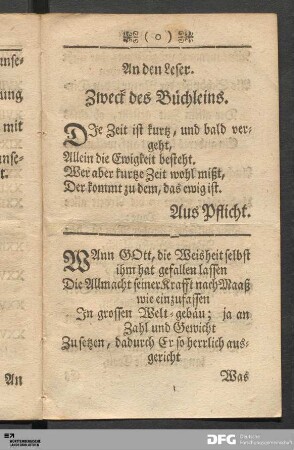 ( o )
An den Leser.
Zweck des Büchleins.
DIe Zeit ist kurtz, und bald ver-
geht,
Allein die Ewigkeit besteht.
Wer aber kurtze Zeit wohl mißt,
Der kommt zu dem, das ewig ist.
Aus Pflicht.
WAnn GOtt, die Weisheit selbst
ihm hat gefallen lassen
Die Allmacht seiner Krafft nach Maaß
wie einzufassen
In grossen Welt-gebäu; ja an
Zahl und Gewicht
Zu setzen, dadurch Er so herrlich aus-
gericht
Was
unse-
ung
mit
unse-
t.
An
DFG